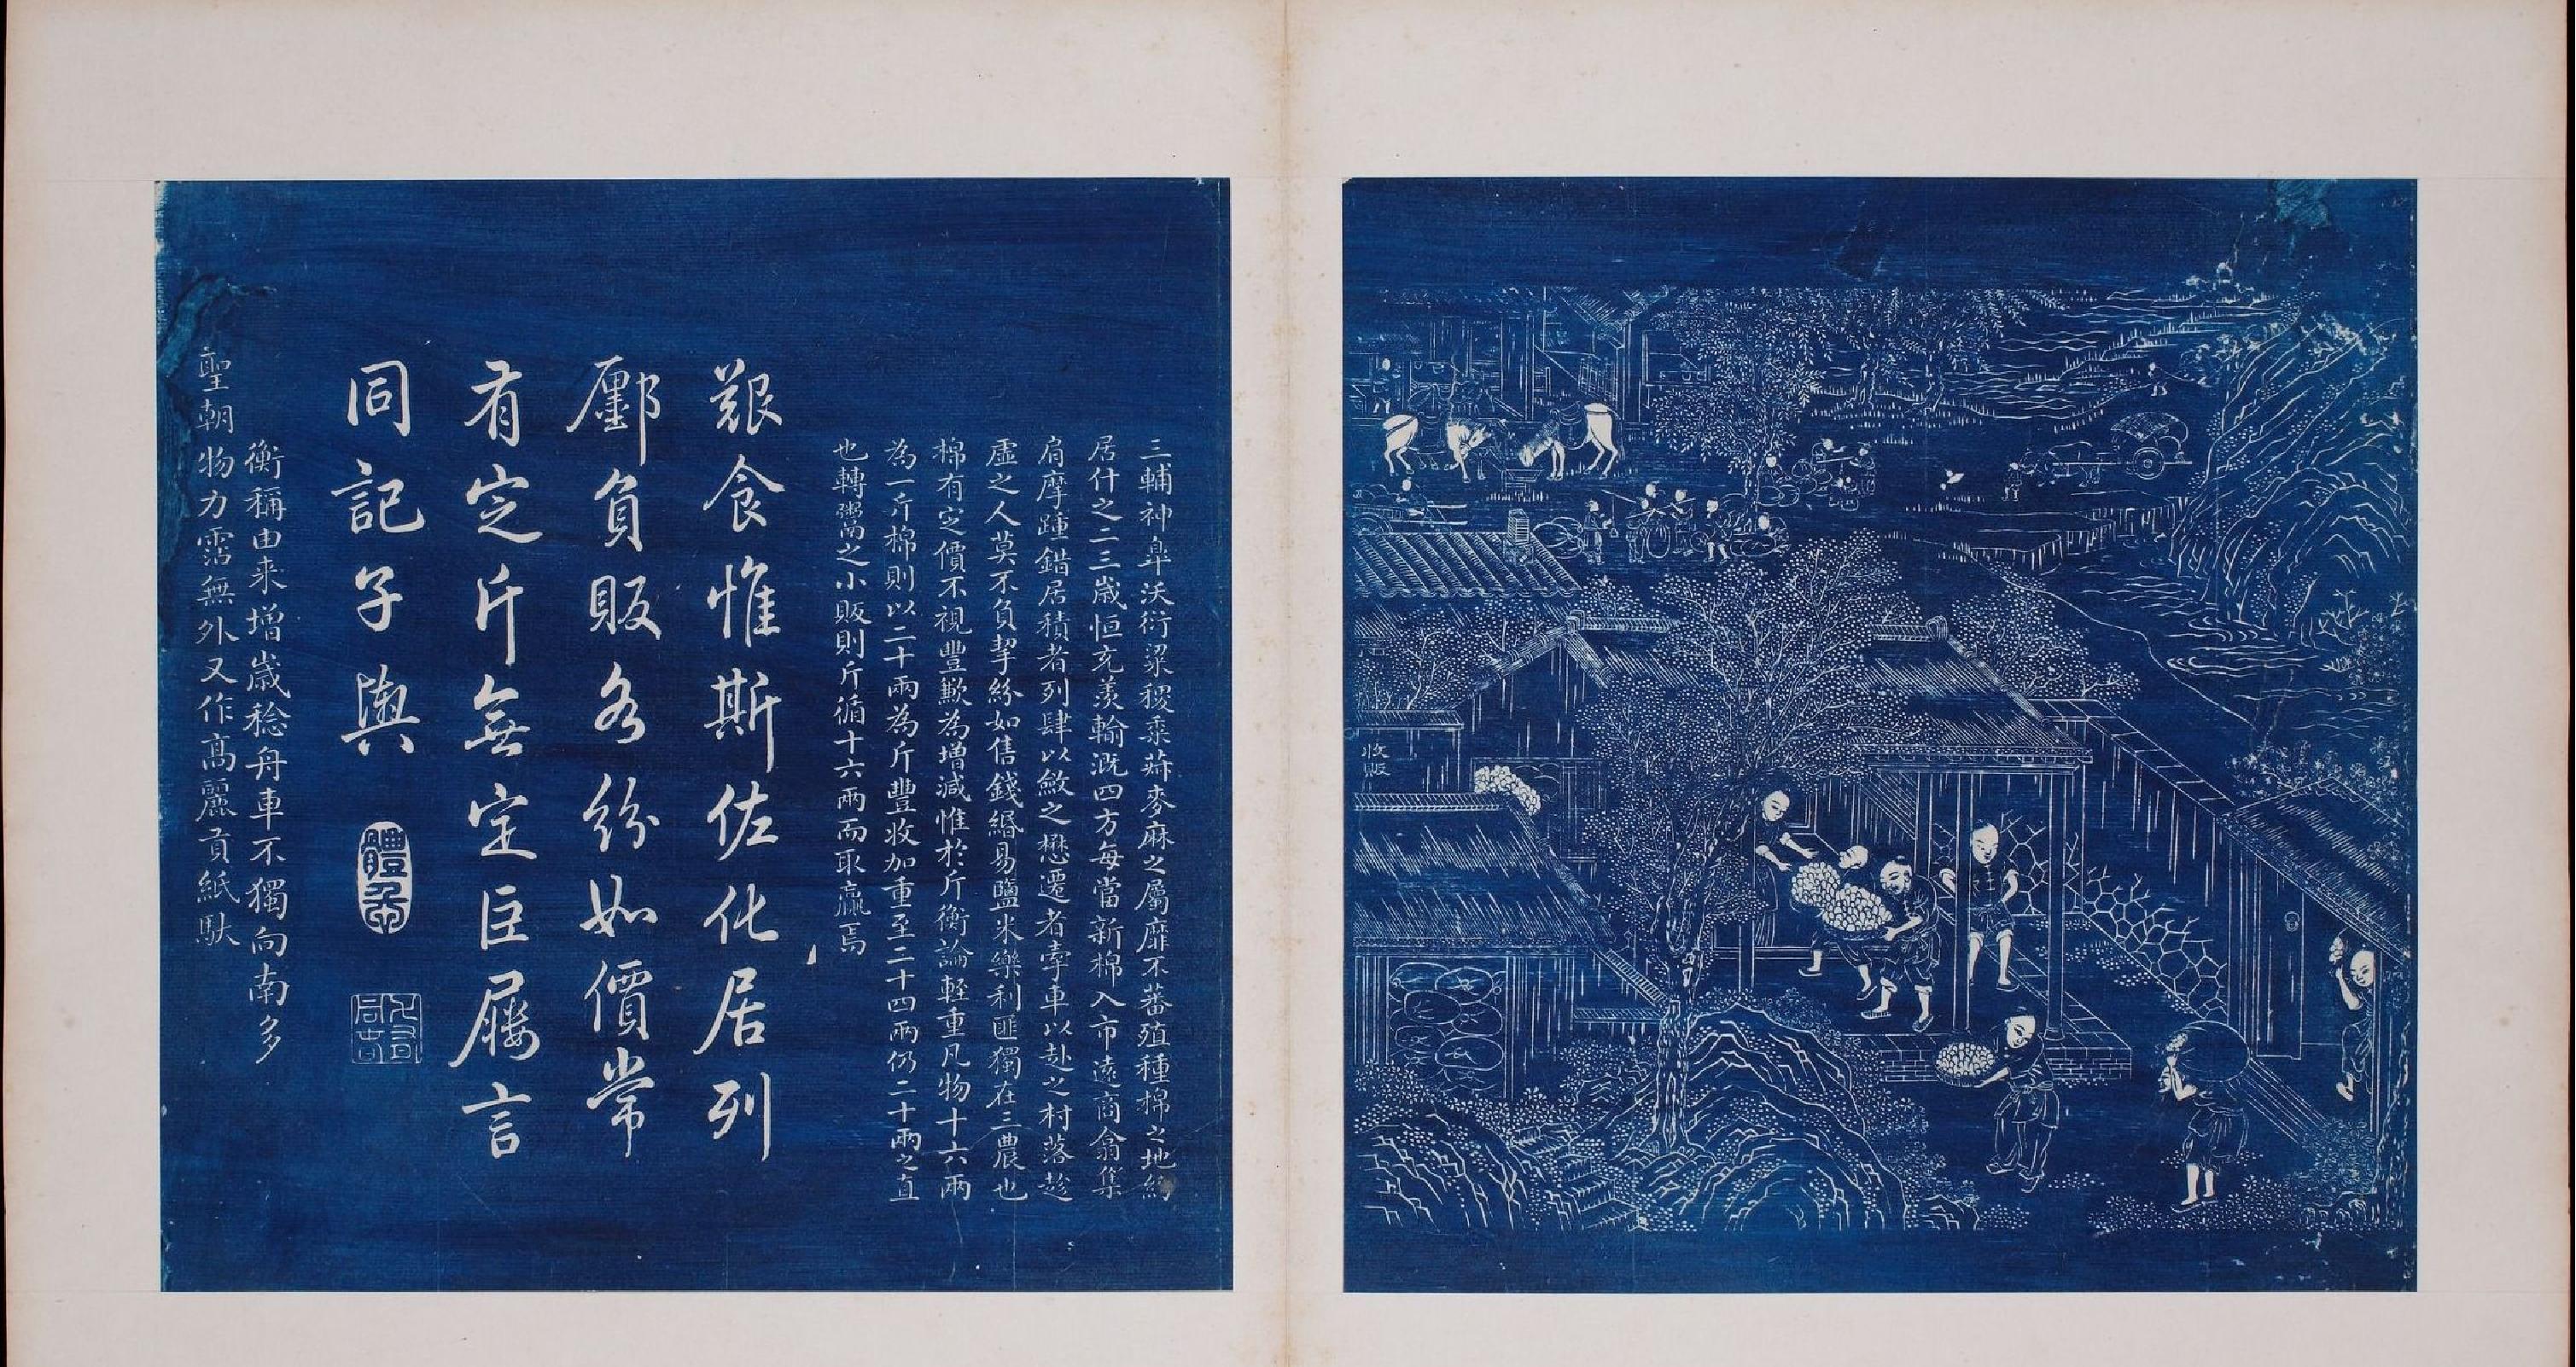 收販
三輔神皋沃衍梁稷黍菽麥麻之屬靡不蕃殖種棉之地約
居什之二三歲恒充羨輸溉四方每當新棉入市遠商翕集
肩摩踵錯居積者列肆以斂之懋遷者牽車以赴之村落趁
虛之人莫不負挈紛如售錢緡易鹽米樂利匪獨在三農也
棉有定價不視豐歉為增減惟於斤衡論輕重凡物十六兩
為一斤棉則以二十兩為斤豐收加重至二十四兩仍二十兩之直
也轉鬻之小販則斤循十六兩而取贏焉
艱食惟斯佐化居列
廛負販各紛如價常
有定斤無定臣屨言
同記子輿
體乾
衡稱由来增歲稔舟車不獨向南多
聖朝物力霑無外又作高麗貢紙馱